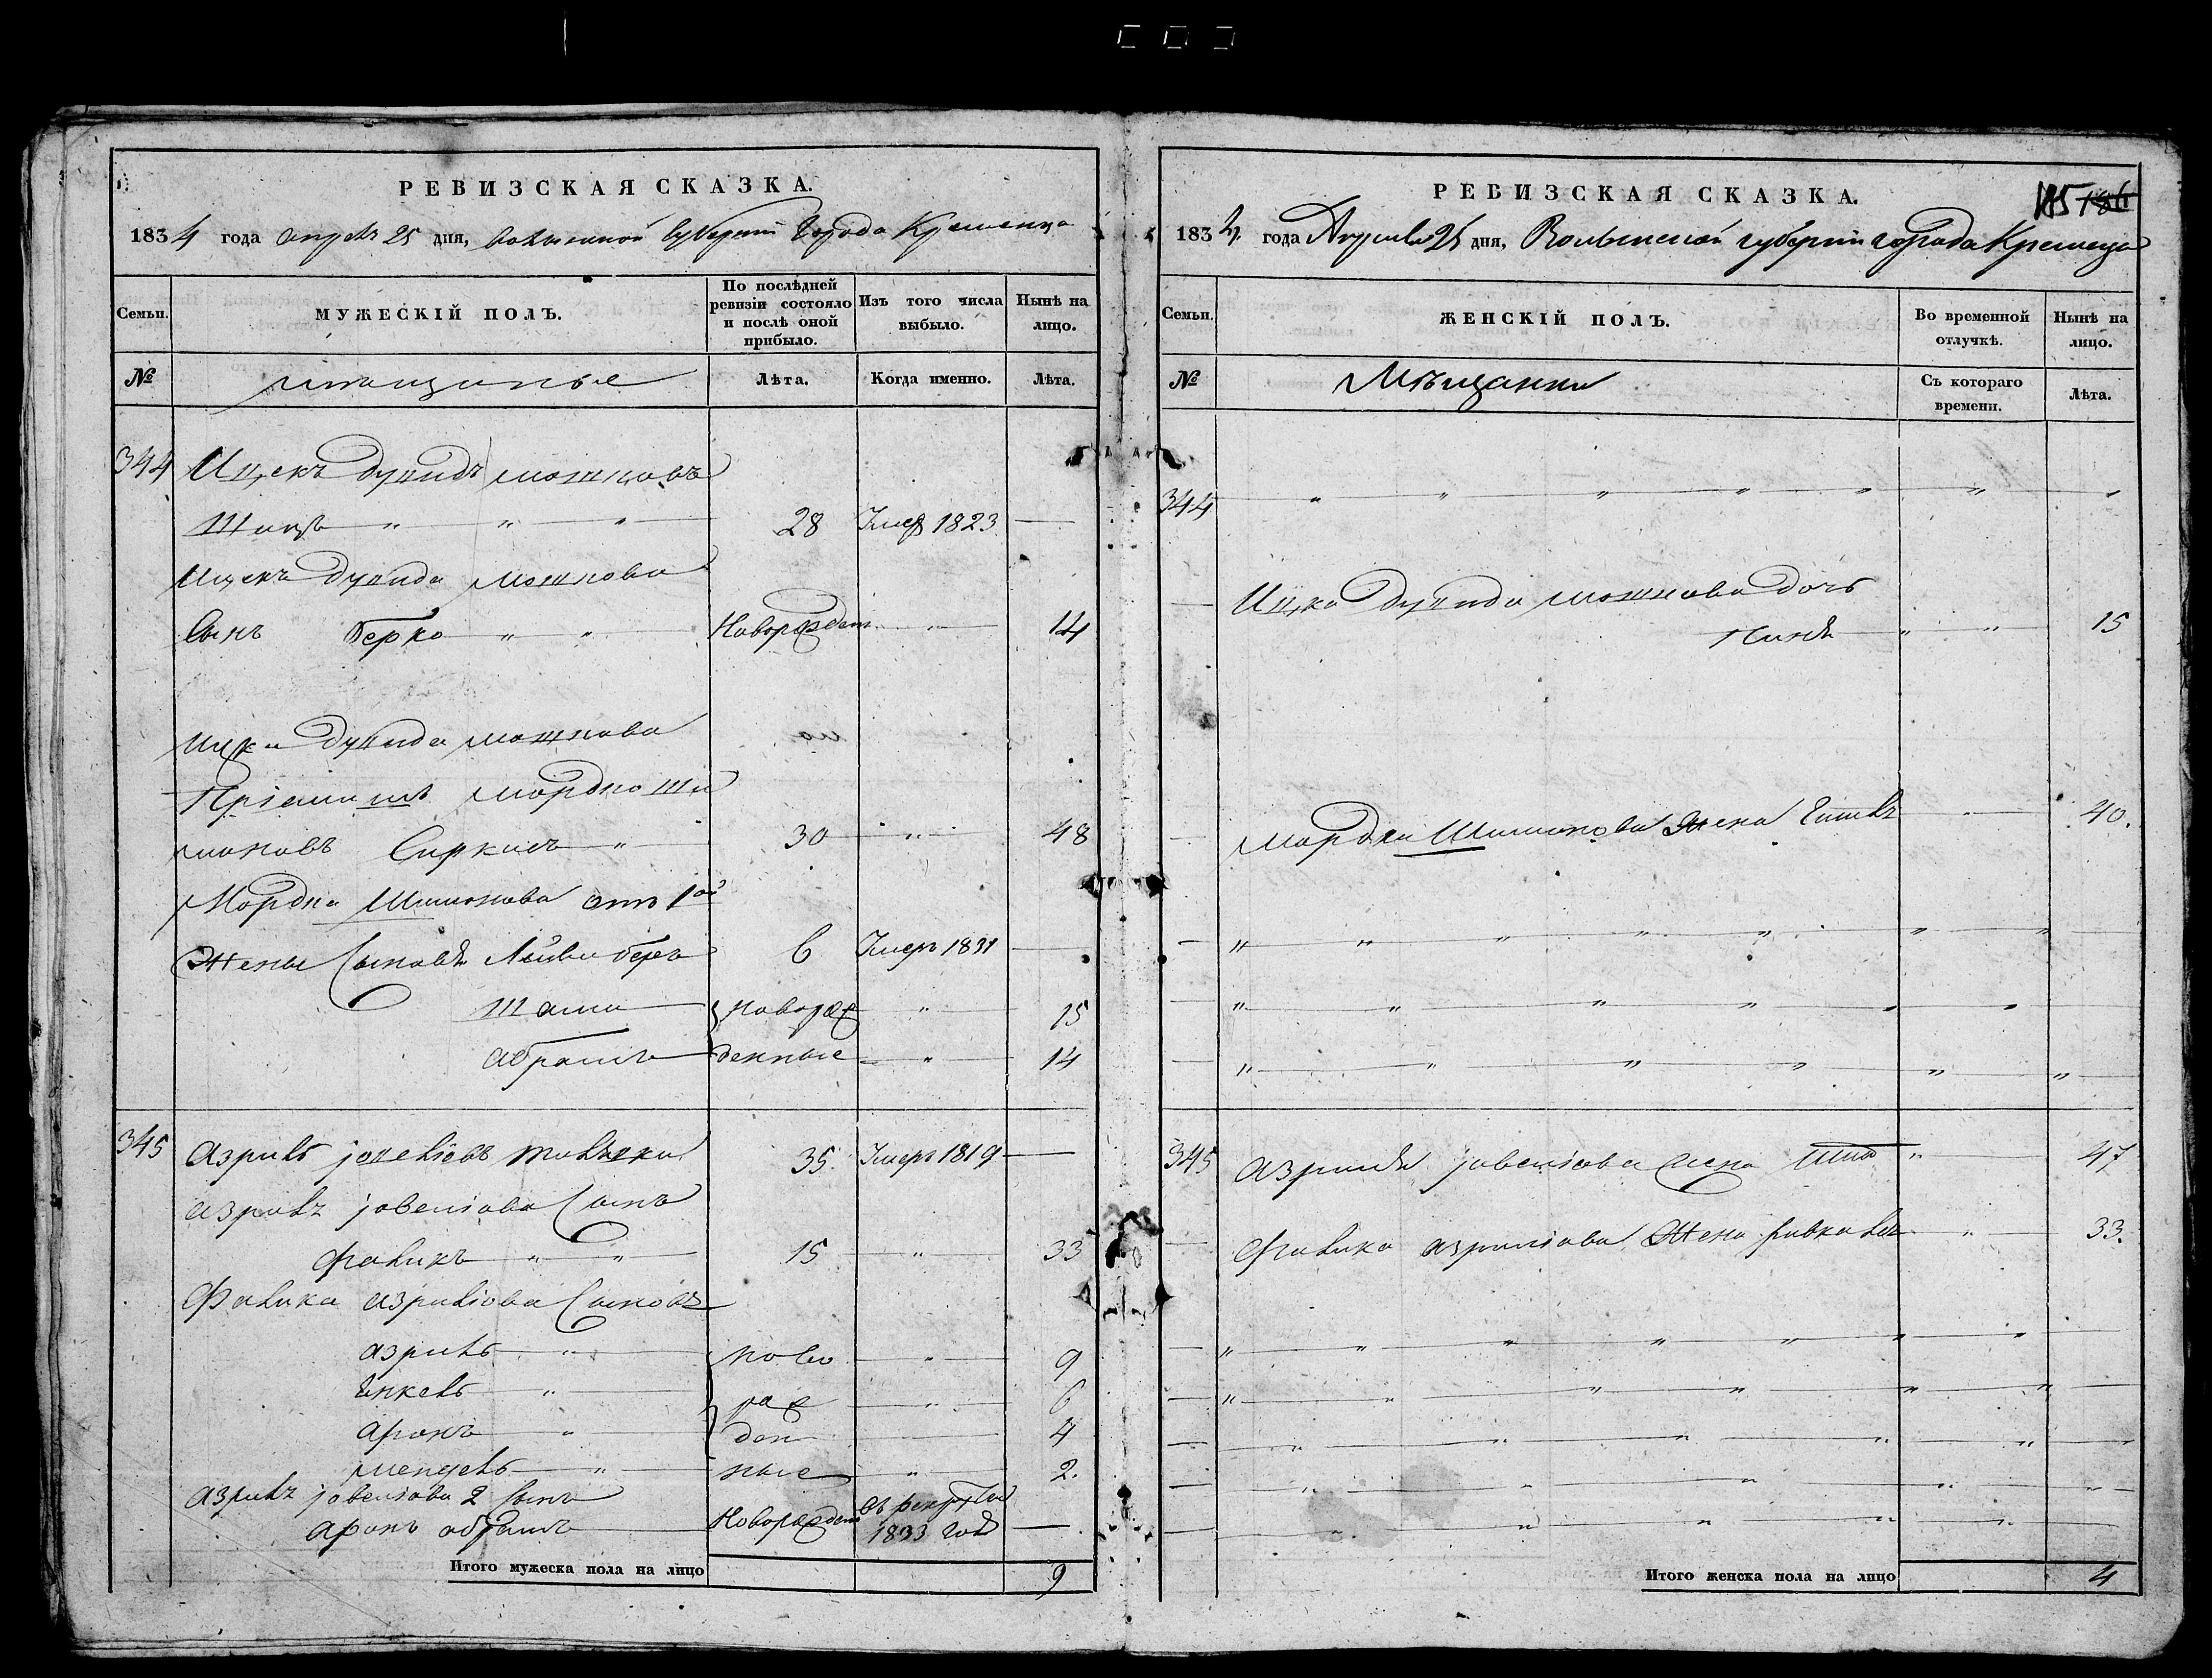 РЕВИЗСКАЯ СКАЗКА.
1834 года апреля 25 дня, волынской губернии города Кременца
Семьи.
МУЖЕСКІЙ ПОЛЪ.
По послѣдней ревизіи состояло и послѣ оной прибыло.
Изъ того числа выбыло.
Нынѣ на лицо.
№
мещанье
Лѣта.
Когда именно.
Лѣта.
344 Ицекъ Дувидъ мошковъ
28 Умер 1823 —
Ицека Дувида мошкова
Сынъ берко " " Новорожден " 14
Ицка Дувида мошкова
Пріемишъ мордко Ши
моновъ 30 " 48
Мордка Шимонова отъ 1ой
Жены Сыновья Лейба беръ 6 Умеръ 1831 —
новорож " 15
абрамъ денные " 14
345 азриль 35. Умеръ 1819 —
азриль іовелiова Сынъ
фаликъ " " 15 " 33
Фалика азриліова Сыновъ
азриль " ново " 9
Янкель " рож " 6
аронъ " ден 4
мендель " ные " 2.
азриль іовелiова 2 Сынъ
аронъ абрамъ Новорожден въ рекруты 1833 года —
Итого мужеска пола на лицо 9
РЕВИЗСКАЯ СКАЗКА.
185 186
1834 года Апреля 25 дня, Волынской губерніи города Кременца
Семьи.
ЖЕНСКІЙ ПОЛЪ.
Во временной отлучкѣ.
Нынѣ на лицо.
№
Мѣщанки
Съ котораго времени.
Лѣта.
344 " " " " " " "
Ицка Дувида мошкова дочь
" " 15
Мордка Шимонова Жена " 40.
" " " " " " "
" " " " " "
" " " " " " "
345 азриля іовелiова жена " 47
Фалика азриліова Жена ривка " 33.
" " " " " "
" " " " " "
" " " " "
" " " " "
" " " " "
Итого женска пола на лицо 4